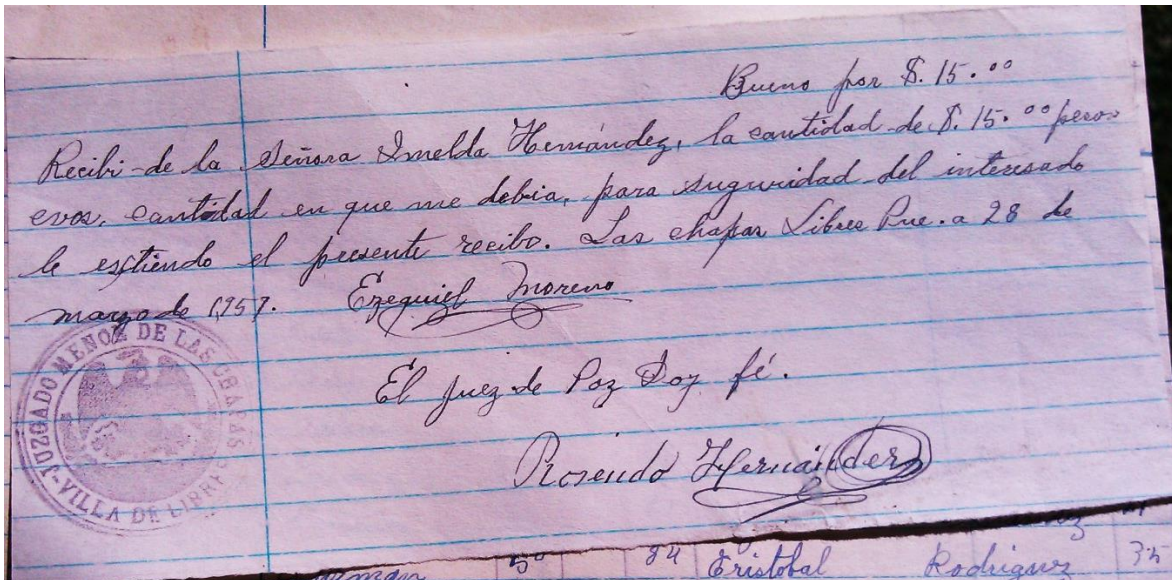 Bueno por $. 15.00
Recibi de la Señora Imelda Hernández, la cantidad de $. 15.00 pesos
evos. cantidad en que me debia, para suguridad del interesado
le extiendo el presente recibo. Las chapas Libres Pue. a 28 de
marzo de 1957.
Ezequiel Moreno
El juez de Paz Doy fé.
Rosendo Hernández
JUZGADO MENOR DE LAS CHAPAS
VILLA DE LIBRES
50 84 Cristobal Rodriguez